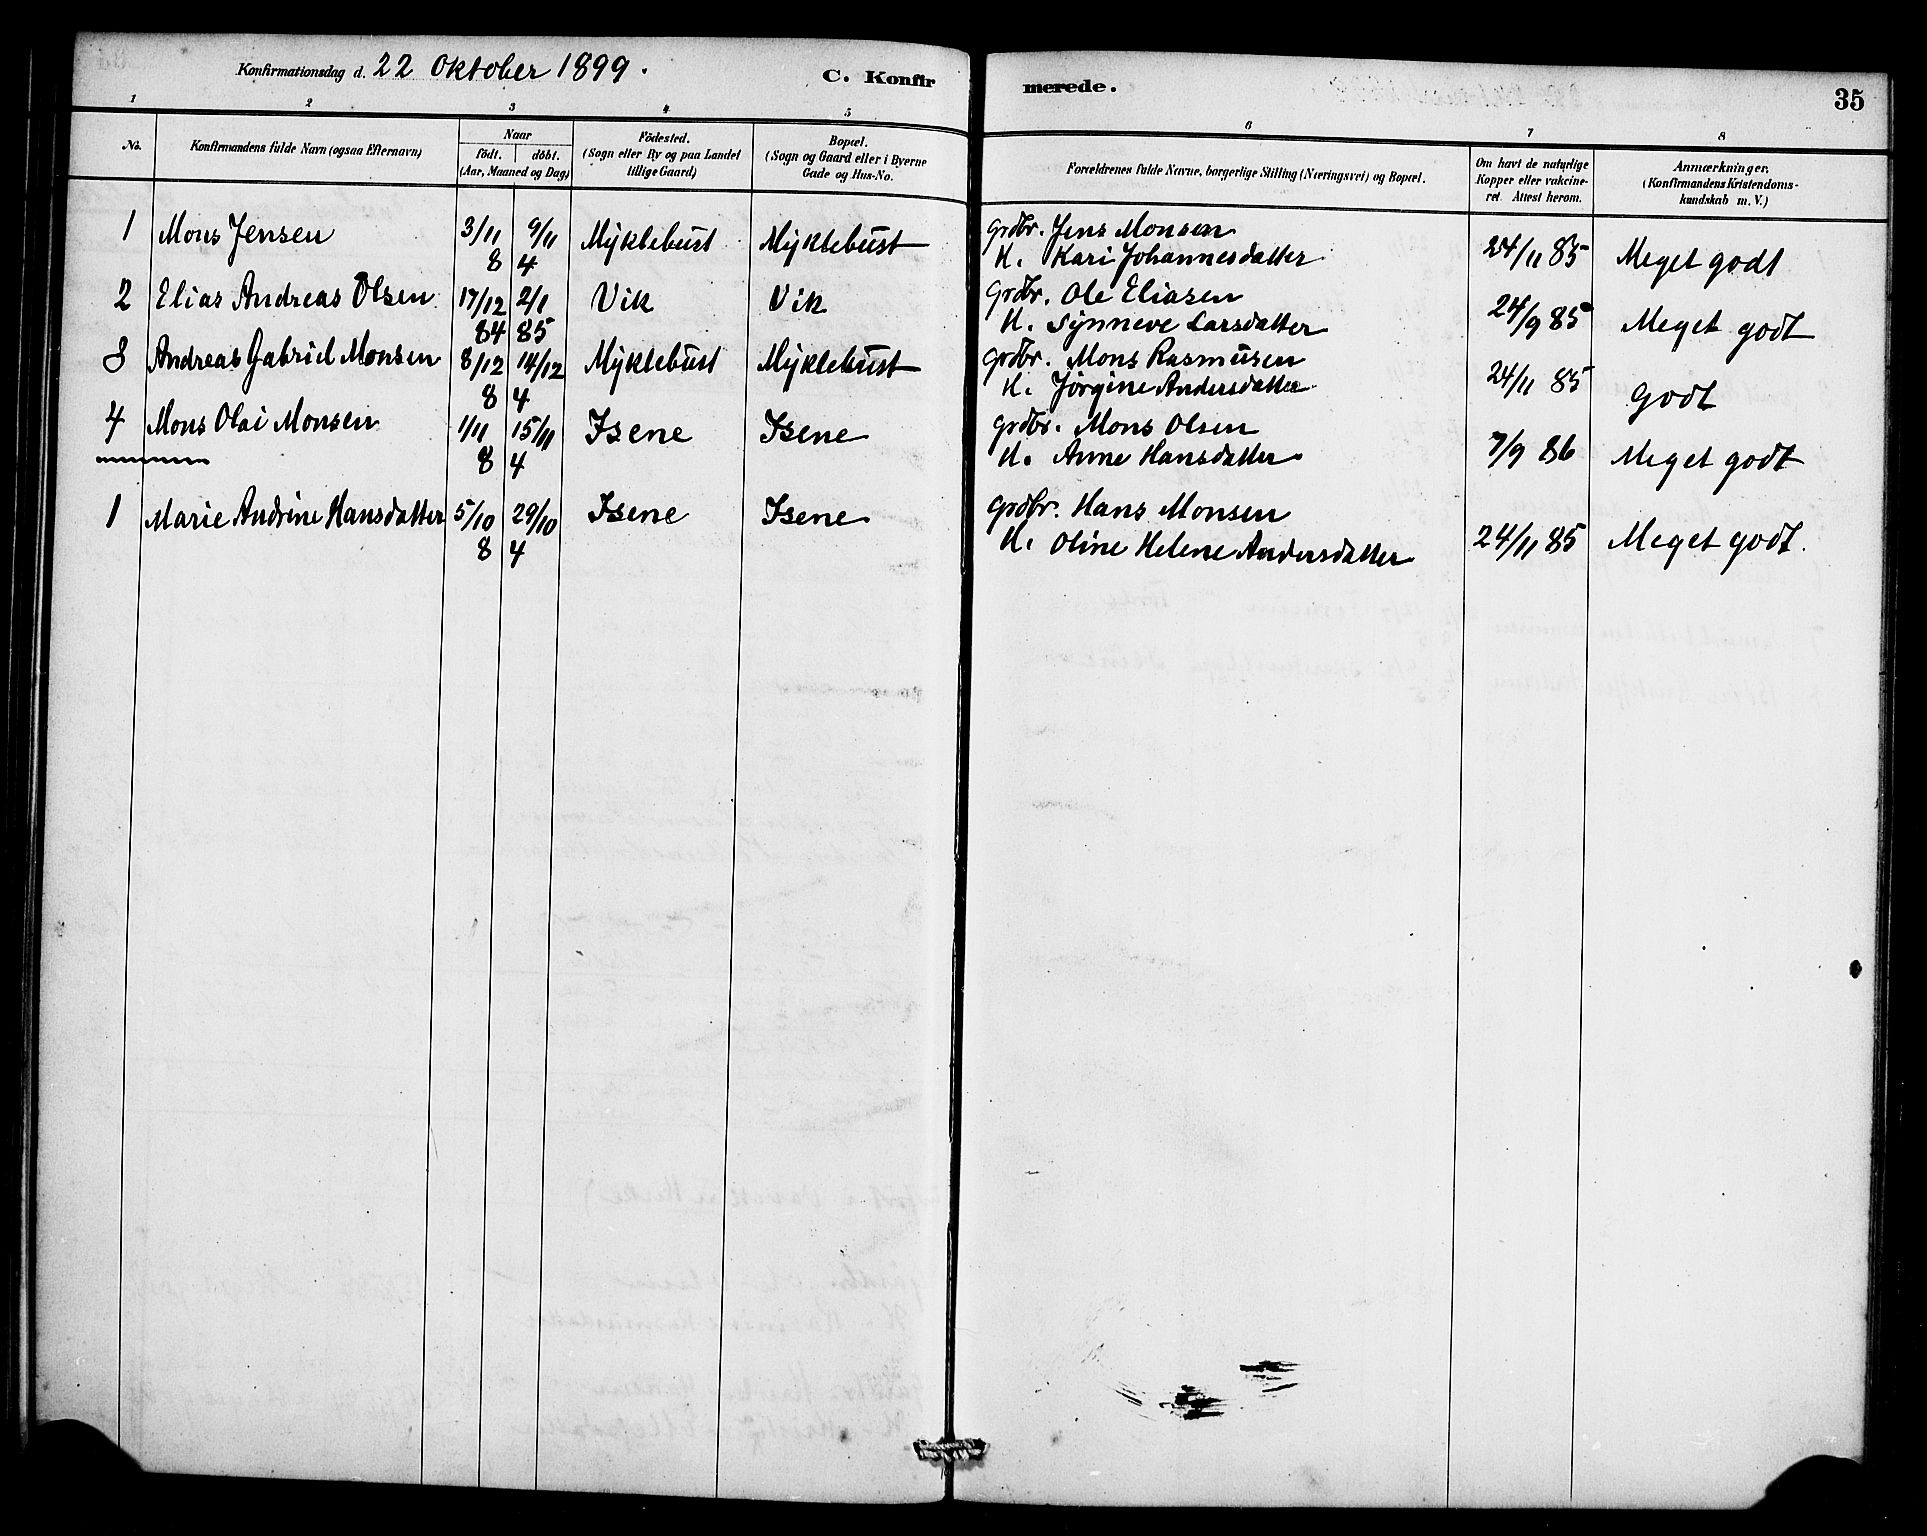 Konfirmationsdag d. 22 Oktober 1899.
C. Konfirmerede.
35
1 2 3 4 5 6 7 8
No. | Konfirmandens fulde Navn (ogsaa Efternavn) | Naar födt. döbt. (Aar, Maaned og Dag) | Födested. (Sogn eller By og paa Landet tillige Gaard) | Bopæl. (Sogn og Gaard eller i Byerne Gade og Hus-No. | Forældrenes fulde Navne, borgerlige Stilling (Næringsvei) og Bopæl. | Om havt de naturlige Kopper eller vakcineret. Attest herom. | Anmærkninger. (Konfirmandens Kristendomskundskab m. V.)
1 Mons Jensen 3/11 9/11 Myklebust Myklebust grdbr. Jens Monsen
8 4 K. Kari Johannesdatter 24/11 85 Meget godt
2 Elias Andreas Olsen 17/12 2/1 Vik Vik grdbr. Ole Eliasen
84 85 K. Synneve Larsdatter 24/9 85 Meget godt
3 Andreas Gabriel Monsen 8/12 14/12 Myklebust Myklebust grdbr. Mons Rasmusen
8 4 K. Jørgine Andersdatter 24/11 85 godt
4 Mons Olai Monsen 1/11 15/11 Isene Isene grdbr. Mons Olsen
8 4 K. Anne Hansdatter 7/9 86 Meget godt
1 Marie Andrine Hansdatter 5/10 29/10 Isene Isene grdbr. Hans Monsen
8 4 K. Oline Helene Andersdatter 24/11 85 Meget godt.